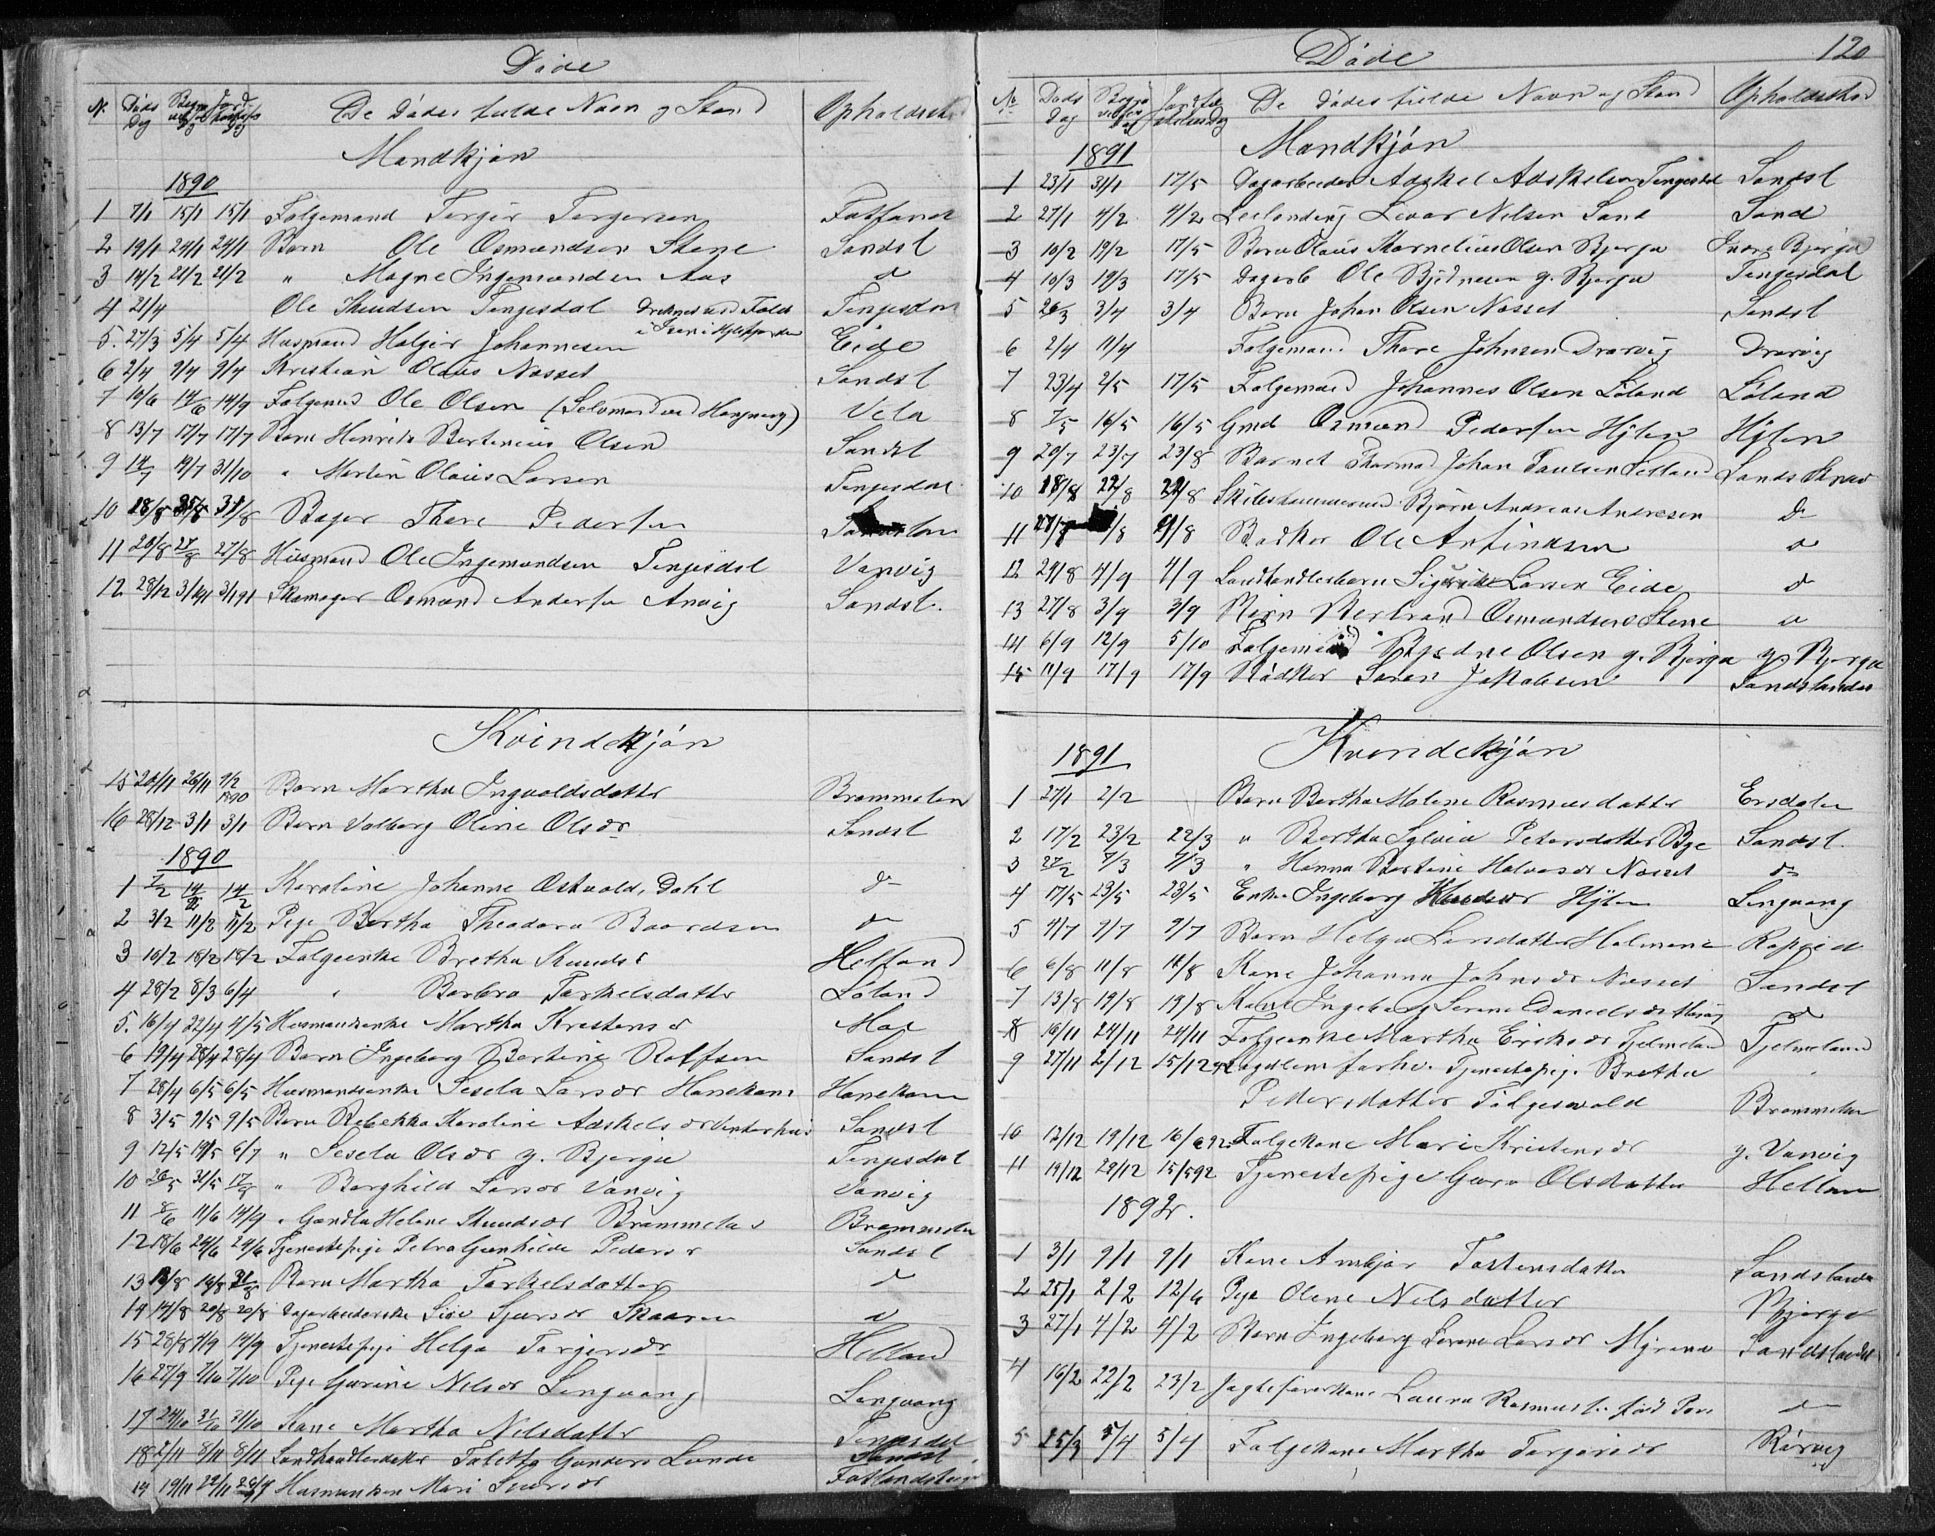 Døde
N. Døds Dag Begravelses Dag Jordfæstelses Dag De Dødes fulde Navn og Stand Opholdssted
Mandkjøn
1890
1 7/1 15/1 15/1 Folgemand Torger Torgersen
2 19/1 24/1 24/1 Barn Ole Osmundsen Stene Sandsl
3 14/2 21/2 21/2 " Magne Ingemundsen Aas d
4 21/4 Ole Knudsen Tengesdal Tengesdal
5. 27/3 5/4 5/4 Husmand Holger Johannesen Eide
6 2/4 9/4 9/4 Kristian Olaus Næsset Sandsl
7 10/6 14/6 14/9 Folgemd Ole Olsen (Selvmord ved Hængning) Vela
8 13/7 17/7 17/7 Barn Henrik Bertinius Olsen Sandsl
9 14/7 19/7 31/10 " Martin Olaus Larsen Tengesdal
10 18/8 31/8 Bager Thore Pedersen
11 20/8 27/8 27/8 Husmand Ole Ingemundsen Tengesdal Vanvig
12 28/12 3/1 91 3/1 91 Skomager Osmund Andersen Anvig Sandsl.
Kvindekjøn
15 20/11 26/11 7/2 1890 Barn Martha Ingvaldsdatter Brommeland
16 28/12 3/1 3/1 Barn Valborg Oline Olsdr Sandsl
1890
1 7/2 14/2 14/2 Karoline Johanne Ostvalds. Dahl d
2 3/2 11/2 11/2 Pige Bertha Theodora Baardsen d
3 10/2 18/2 18/2 Folgeenke Bretha Knudsd Helland
4 28/2 8/3 6/4 " Barbro Torkelsdatter Løland
5. 16/4 22/4 4/5 Husmandsenke Martha Kristensd Moe
6 19/4 28/4 28/4 Barn Ingeborg Bertine Rolfsen Sandsl
7 28/4 6/5 6/5 Husmandsenke Sesela Larsdr Hanekam Hanekam
8 3/5 9/5 9/5 Barn Rebekka Karoline Adskelsdr Vinterhus Sandsl
9 12/5 19/5 6/7 " Sesela Olsdr y. Bjerga Tengesdal
10 26/5 31/5 " Borghild Larsdr Vanvig Vanvig
11 8/6 11/6 14/9 " Helene Knudsdr Brommeland Brommeland
12 18/6 24/6 24/6 Tjenestepige Petra Gunhilde Pedersd Sandsl
13 19/8 31/8 Barn Martha Torkelsdatter d
14 14/8 20/8 20/8 Dagarbeiderske Sise Sjursdr Skaaren d
15 28/8 7/9 14/9 Tjenestepige Helga Torgersdr Helland
16 27/9 7/10 7/10 Pige Gurine Nelsdr Lengvang Lengvang
17 24/10 31/10 31/10 Kone Martha Nelsdatter Tengesdal
18 2/11 8/11 8/11 Landhandlerdatter Gunders Lunde Sandsl
19 19/11 Mari Sjursdr
Døde 120
No Døds Dag Begravelses Dag Jordfæstelsesdag De Dødes fulde Navn og Stand Opholdssted
Mandkjøn
1891
1 23/1 31/1 17/5 Dagarbeider Adskel Adskelsen Tengesdal Sandsl
2 27/1 4/2 4/2 Leilending Levor Nelsen Sand Sand
3 10/2 19/2 17/5 Barn Olaus Kornelius Olsen Bjerga Indre Bjerga
4 10/3 19/3 17/5 Dagarb Ole Bjødnesen y. Bjerga Tengesdal
5 26/3 3/4 3/4 Barn Johan Olsen Næsset Sandsl
6 2/4 11/4 Folgemand Thore Johnsen Drarvig Drarvig
7 23/4 2/5 17/5 Folgemand Johannes Olsen Løland Løland
8 7/5 16/5 16/5 Gmd Osmund Pedersen Hylen Hylen
9 20/7 23/7 23/8 Barnet Thormod Johan Paulsen
10 18/8 22/8 22/8 Bjørn Andreas Andresen d
11 9/8 Bødker Ole Arfindsen d
12 29/8 4/9 4/9 Landhandlerbarn Sigurd Larsen Eide d
13 27/8 3/9 3/9 Barn Bertrand Osmundsen Stene d
14 6/9 12/9 5/10 Folgemand Bjødne Olsen y. Bjerga y. Bjerga
15 11/9 17/9 17/9 Bødker Søren Jakobsen Sandslandet
Kvindekjøn
1891
1 27/1 2/2 Barn Bertha Malene Rasmusdatter Ersdalen
2 17/2 23/2 22/3 " Bertha Sylvia Petersdatter Bye Sandsl.
3 27/2 7/3 7/3 " Hanna Bertine Halvorsdr Næsset d
4 17/5 23/5 23/5 Enke Ingeborg Knudsdr Hylen Lengvang
5 4/7 9/7 9/7 Barn Helga Larsdatter Holmene
6 6/8 11/8 11/8 Kone Johanna Johnsdr Næsset Sandsl
7 13/8 19/8 19/8 Kone Ingeborg Serine Danielsdr d
8 16/11 24/11 24/11 Folgeenke Martha Eriksdr Fjelmeland Fjelmeland
9 27/11 2/12 15/12 Tjenestepige Bretha
Pedersdatter Brommeland
10 12/12 19/12 Folgekone Mari Kristensdr y. Vanvig
11 19/12 28/12 15/5 92 Tjenestepige Guro Olsdatter Helland
1892.
1 3/1 9/1 9/1 Kone Anbjør Tostensdatter Sandslandet
2 25/1 2/2 12/6 Pige Olene Nelsdatter Bjerga
3 27/1 4/2 4/2 Barn Ingeborg Serene Larsdr Myrene Sandslandet
4 16/2 22/2 23/2 Jagteførerkone Laura d
5 25/3 5/4 5/4 Folgekone Martha Torgersdr Rørvig